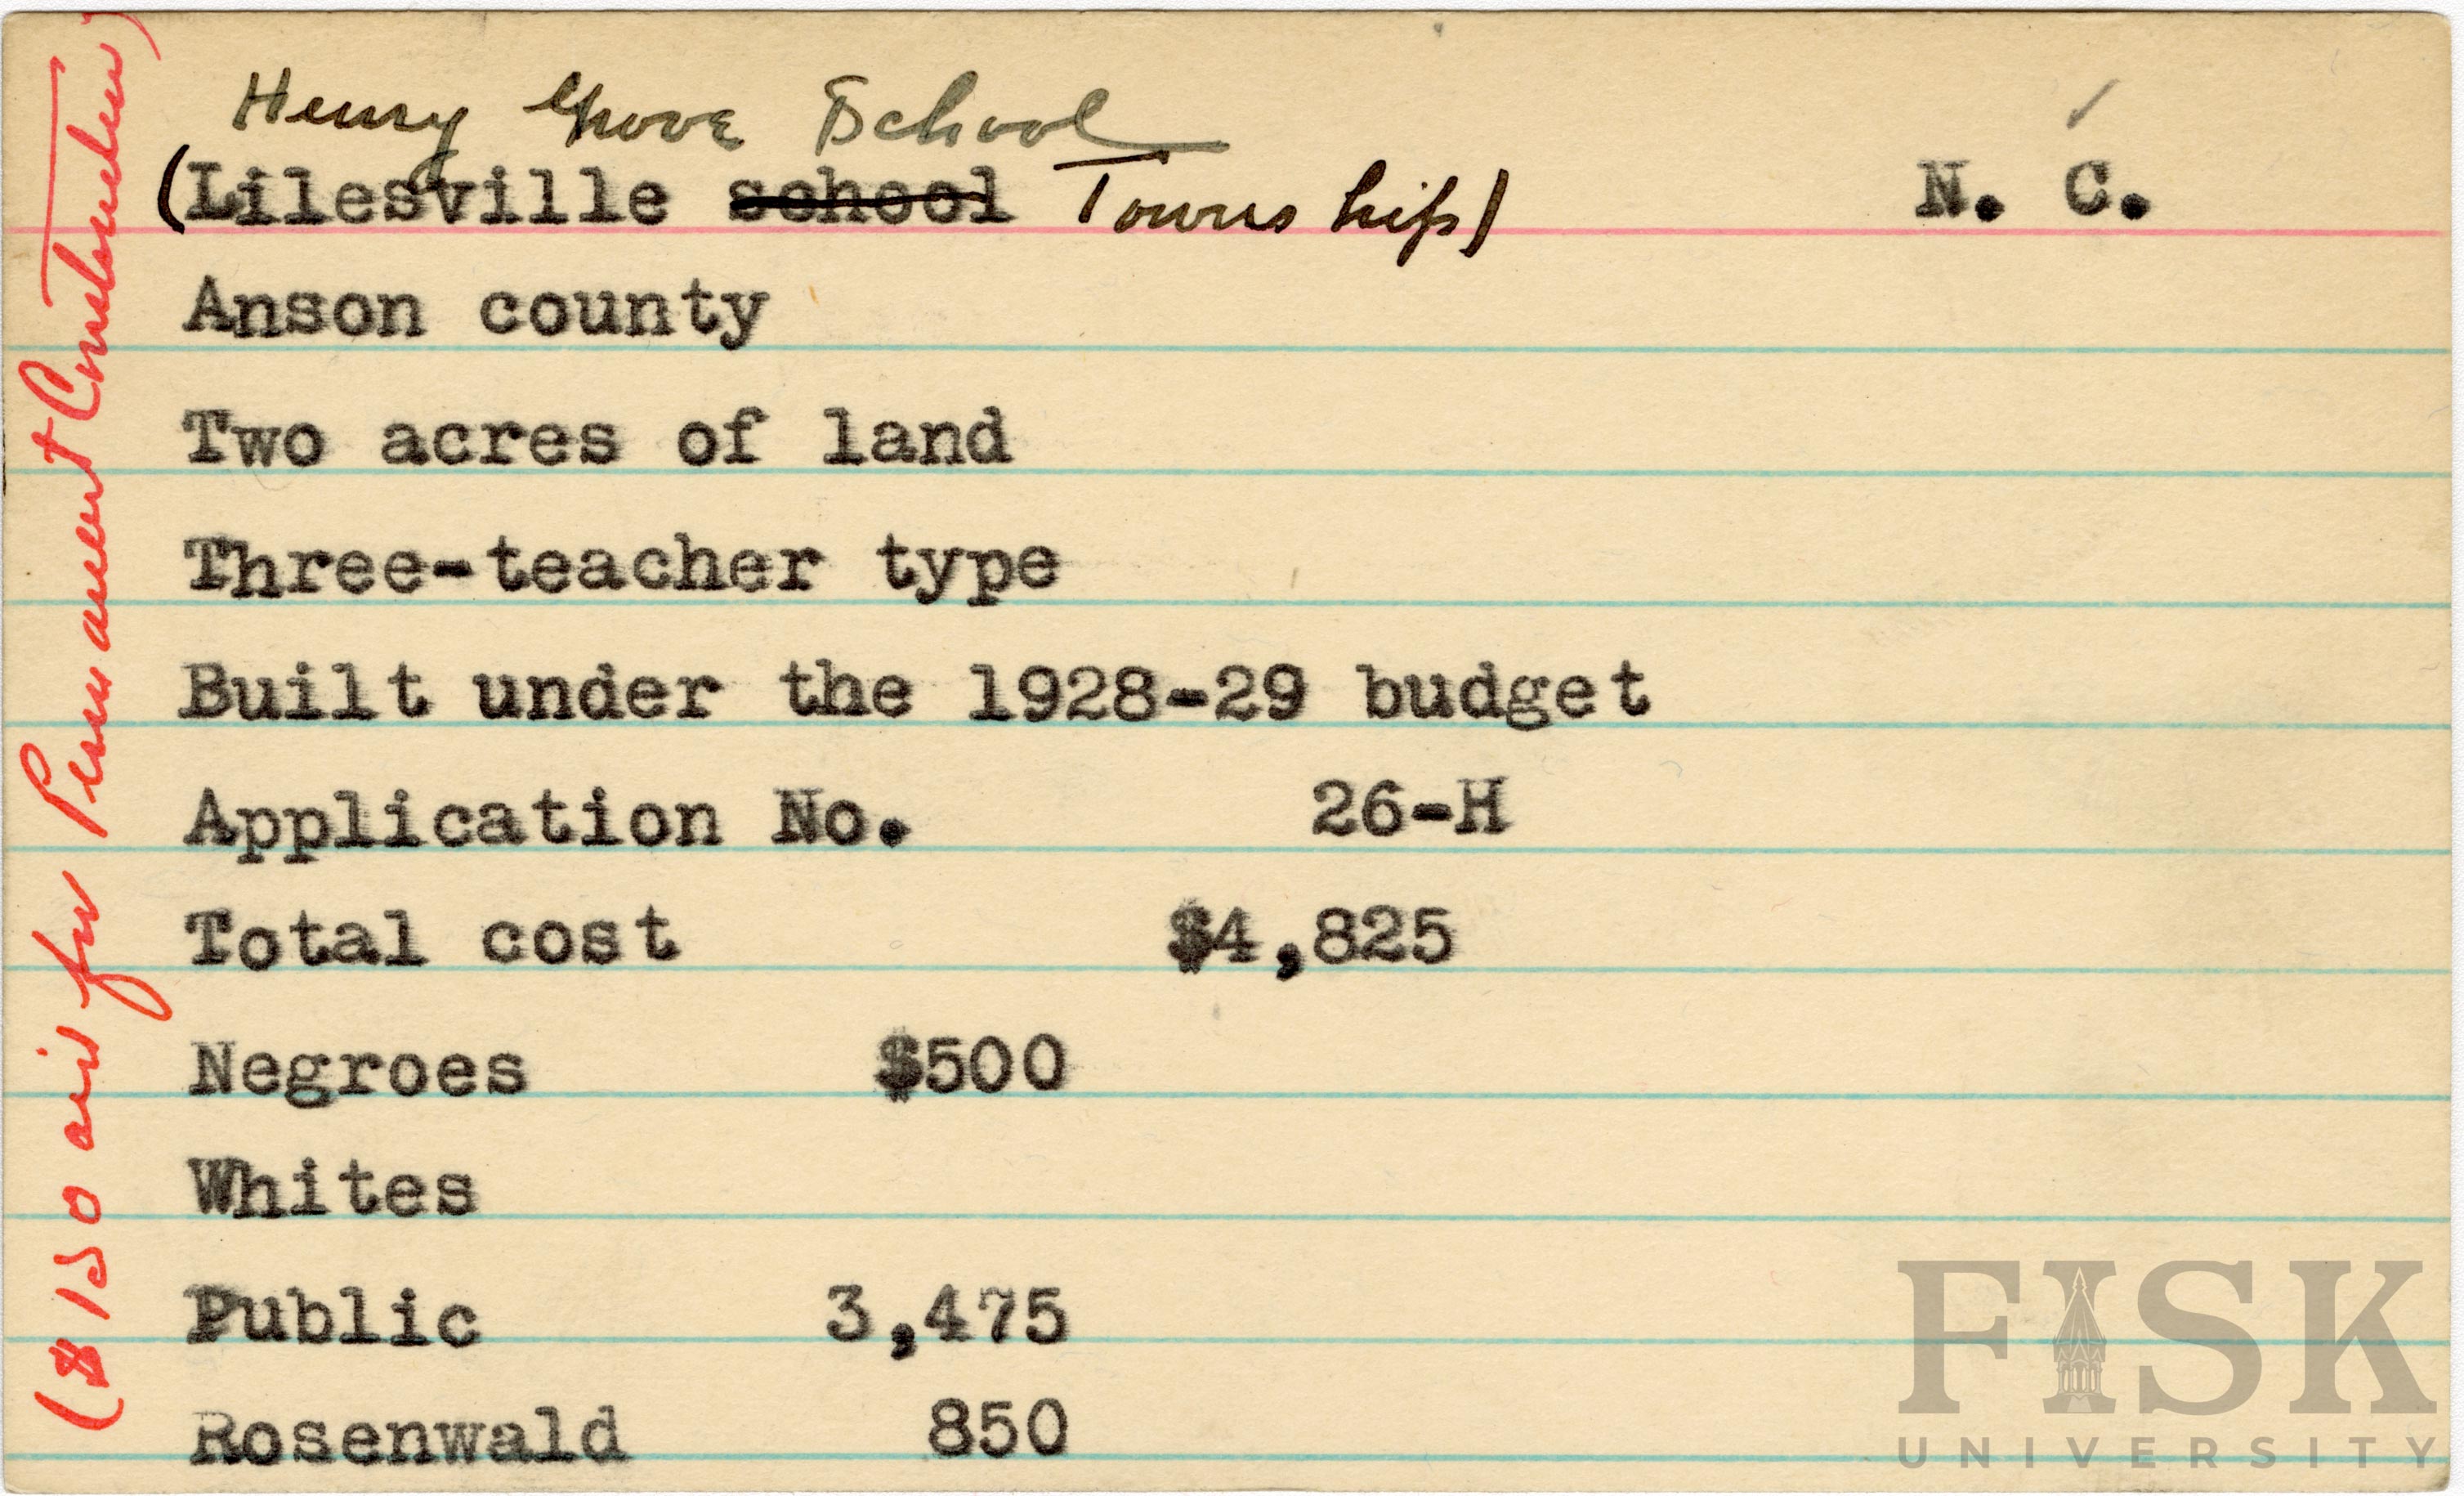 Henry Grove School
(Lilesville school Township)
N. C.
Anson county
Two acres of land
Three-teacher type
Built under the 1928-29 budget
Application No. 26-H
Total cost $4,825
Negroes $500
Whites
Public 3,475
Rosenwald 850
($150 aid for Permanent Construction)
FISK
UNIVERSITY